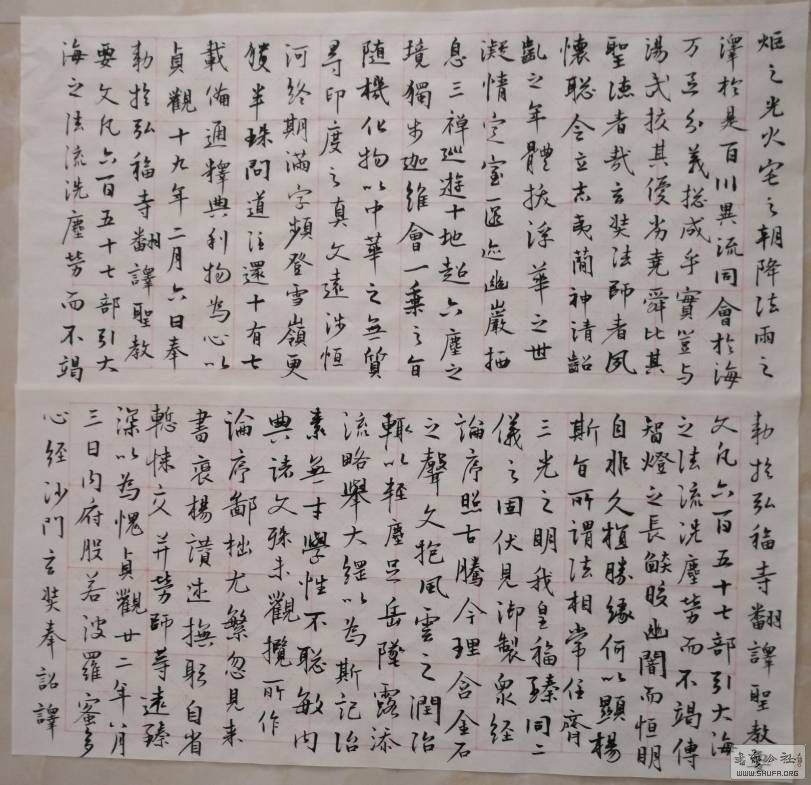 炬之光火宅之朝降法雨之
澤於是百川異流同會於海
万區分義捴成乎實豈与
湯武挍其優劣堯舜比其
聖德者哉玄奘法師者夙
懷聡令立志夷蕳神清齠
齓之年體拔浮華之世
凝情定室匿迹幽巖栖
息三禪巡遊十地超六塵之
境獨步迦維會一乗之旨
随機化物以中華之無質
尋印度之真文遠涉恒
河終期滿字頻登雪嶺更
獲半珠問道往還十有七
載備通釋典利物為心以
貞觀十九年二月六日奉
勅於弘福寺翻譯聖教
要文凡六百五十七部引大
海之法流洗塵勞而不竭
勅於弘福寺翻譯聖教
文凡六百五十七部引大海
之法流洗塵勞而不竭傳
智燈之長皎幽闇而恒明
自非久植勝緣何以顯楊
斯旨所謂法相常住齊
三光之明我皇福臻同二
儀之固伏見御製衆經
論序照古騰今理含金石
之聲文抱風雲之潤治
輙以輕塵足岳墜露添
流略舉大綱以為斯記治
素無才學性不聡敏内
典諸文殊未觀攬所作
論序鄙拙尤繁忽見来
書襃楊讃述撫躬自省
慙悚交并勞師等遠臻
深以為愧貞觀廿二年八月
三日内府般若波羅蜜多
心經沙門玄奘奉詔譯
书艺公社
WWW.SHUFA.ORG